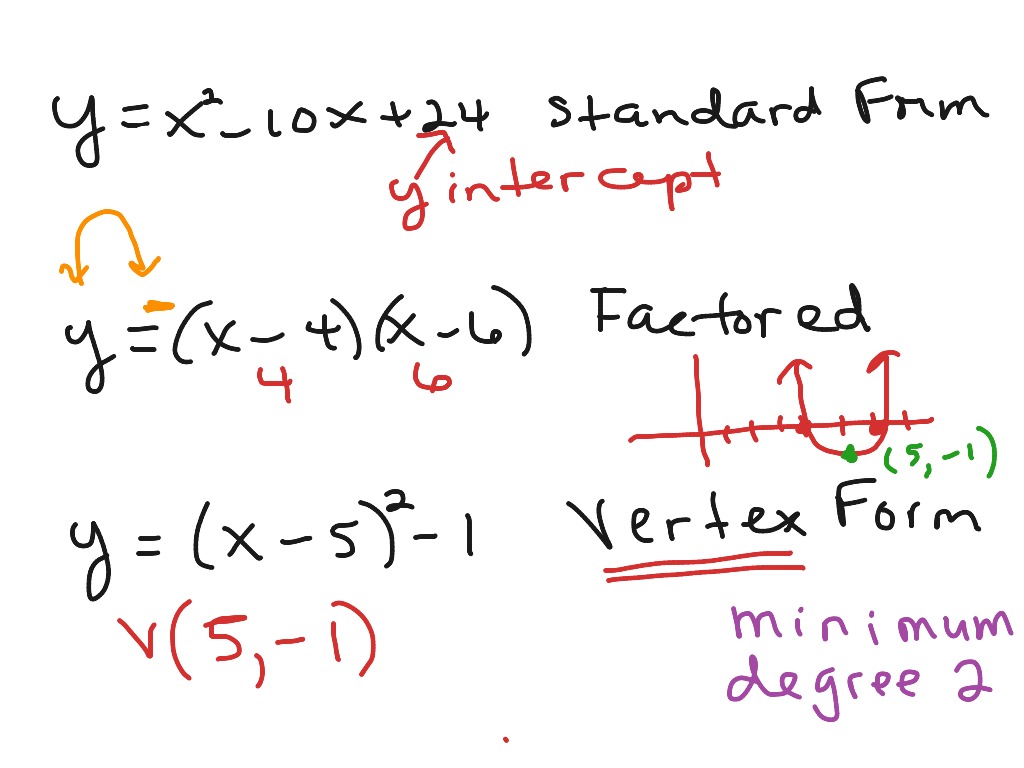 y = x² - 10x + 24 standard Form
y intercept
y = (x - 4)(x - 6) Factored
4 6
(5, -1)
y = (x - 5)² - 1 Vertex Form
V(5, -1)
minimum
degree 2